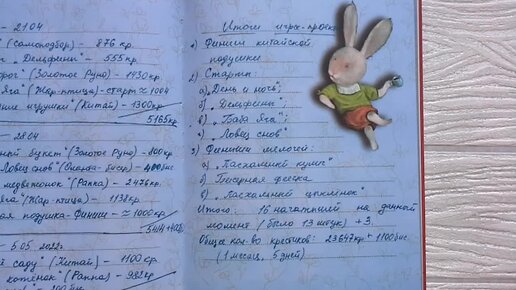 — 21.04
" (Самоподбор) — 876 кр.
" Дельфины" — 535 кр.
рог" (Золотое Руно) — 1430 кр.
Яга" (Жар-птица) — старт ≈ 1004
ние игрушки" (Китай) — 1300 кр.
5165 кр
— 28.04
ный букет" (Золотое Руно) — 800 кр
Ловец снов"
медвежонок" (Panna) — 2476 кр.
Яга" (Жар-птица) — 1138 кр.
ая подушка — Финиш — ≈ 1000 кр.
— 5.05.2022г.
саду" (Китай) — 1100 кр.
котёнок" (Panna) — 982 кр
Итоги игры-проек
1) Финиш китайской
подушки
2) Старты:
а) „День и ночь";
б) „Дельфины";
в) „Баба Яга";
г) „Ловец снов"
3) Финиши мелочей:
а) „Пасхальный кулич"
б) Бисерная феечка
в) „Пасхальный цыплёнок"
Итого: 16 начатишей на данный
момент (было 13 штук) + 3.
Общее кол-во крестиков: 23647 кр + 1100 бис.
(1 месяц, 5 дней)